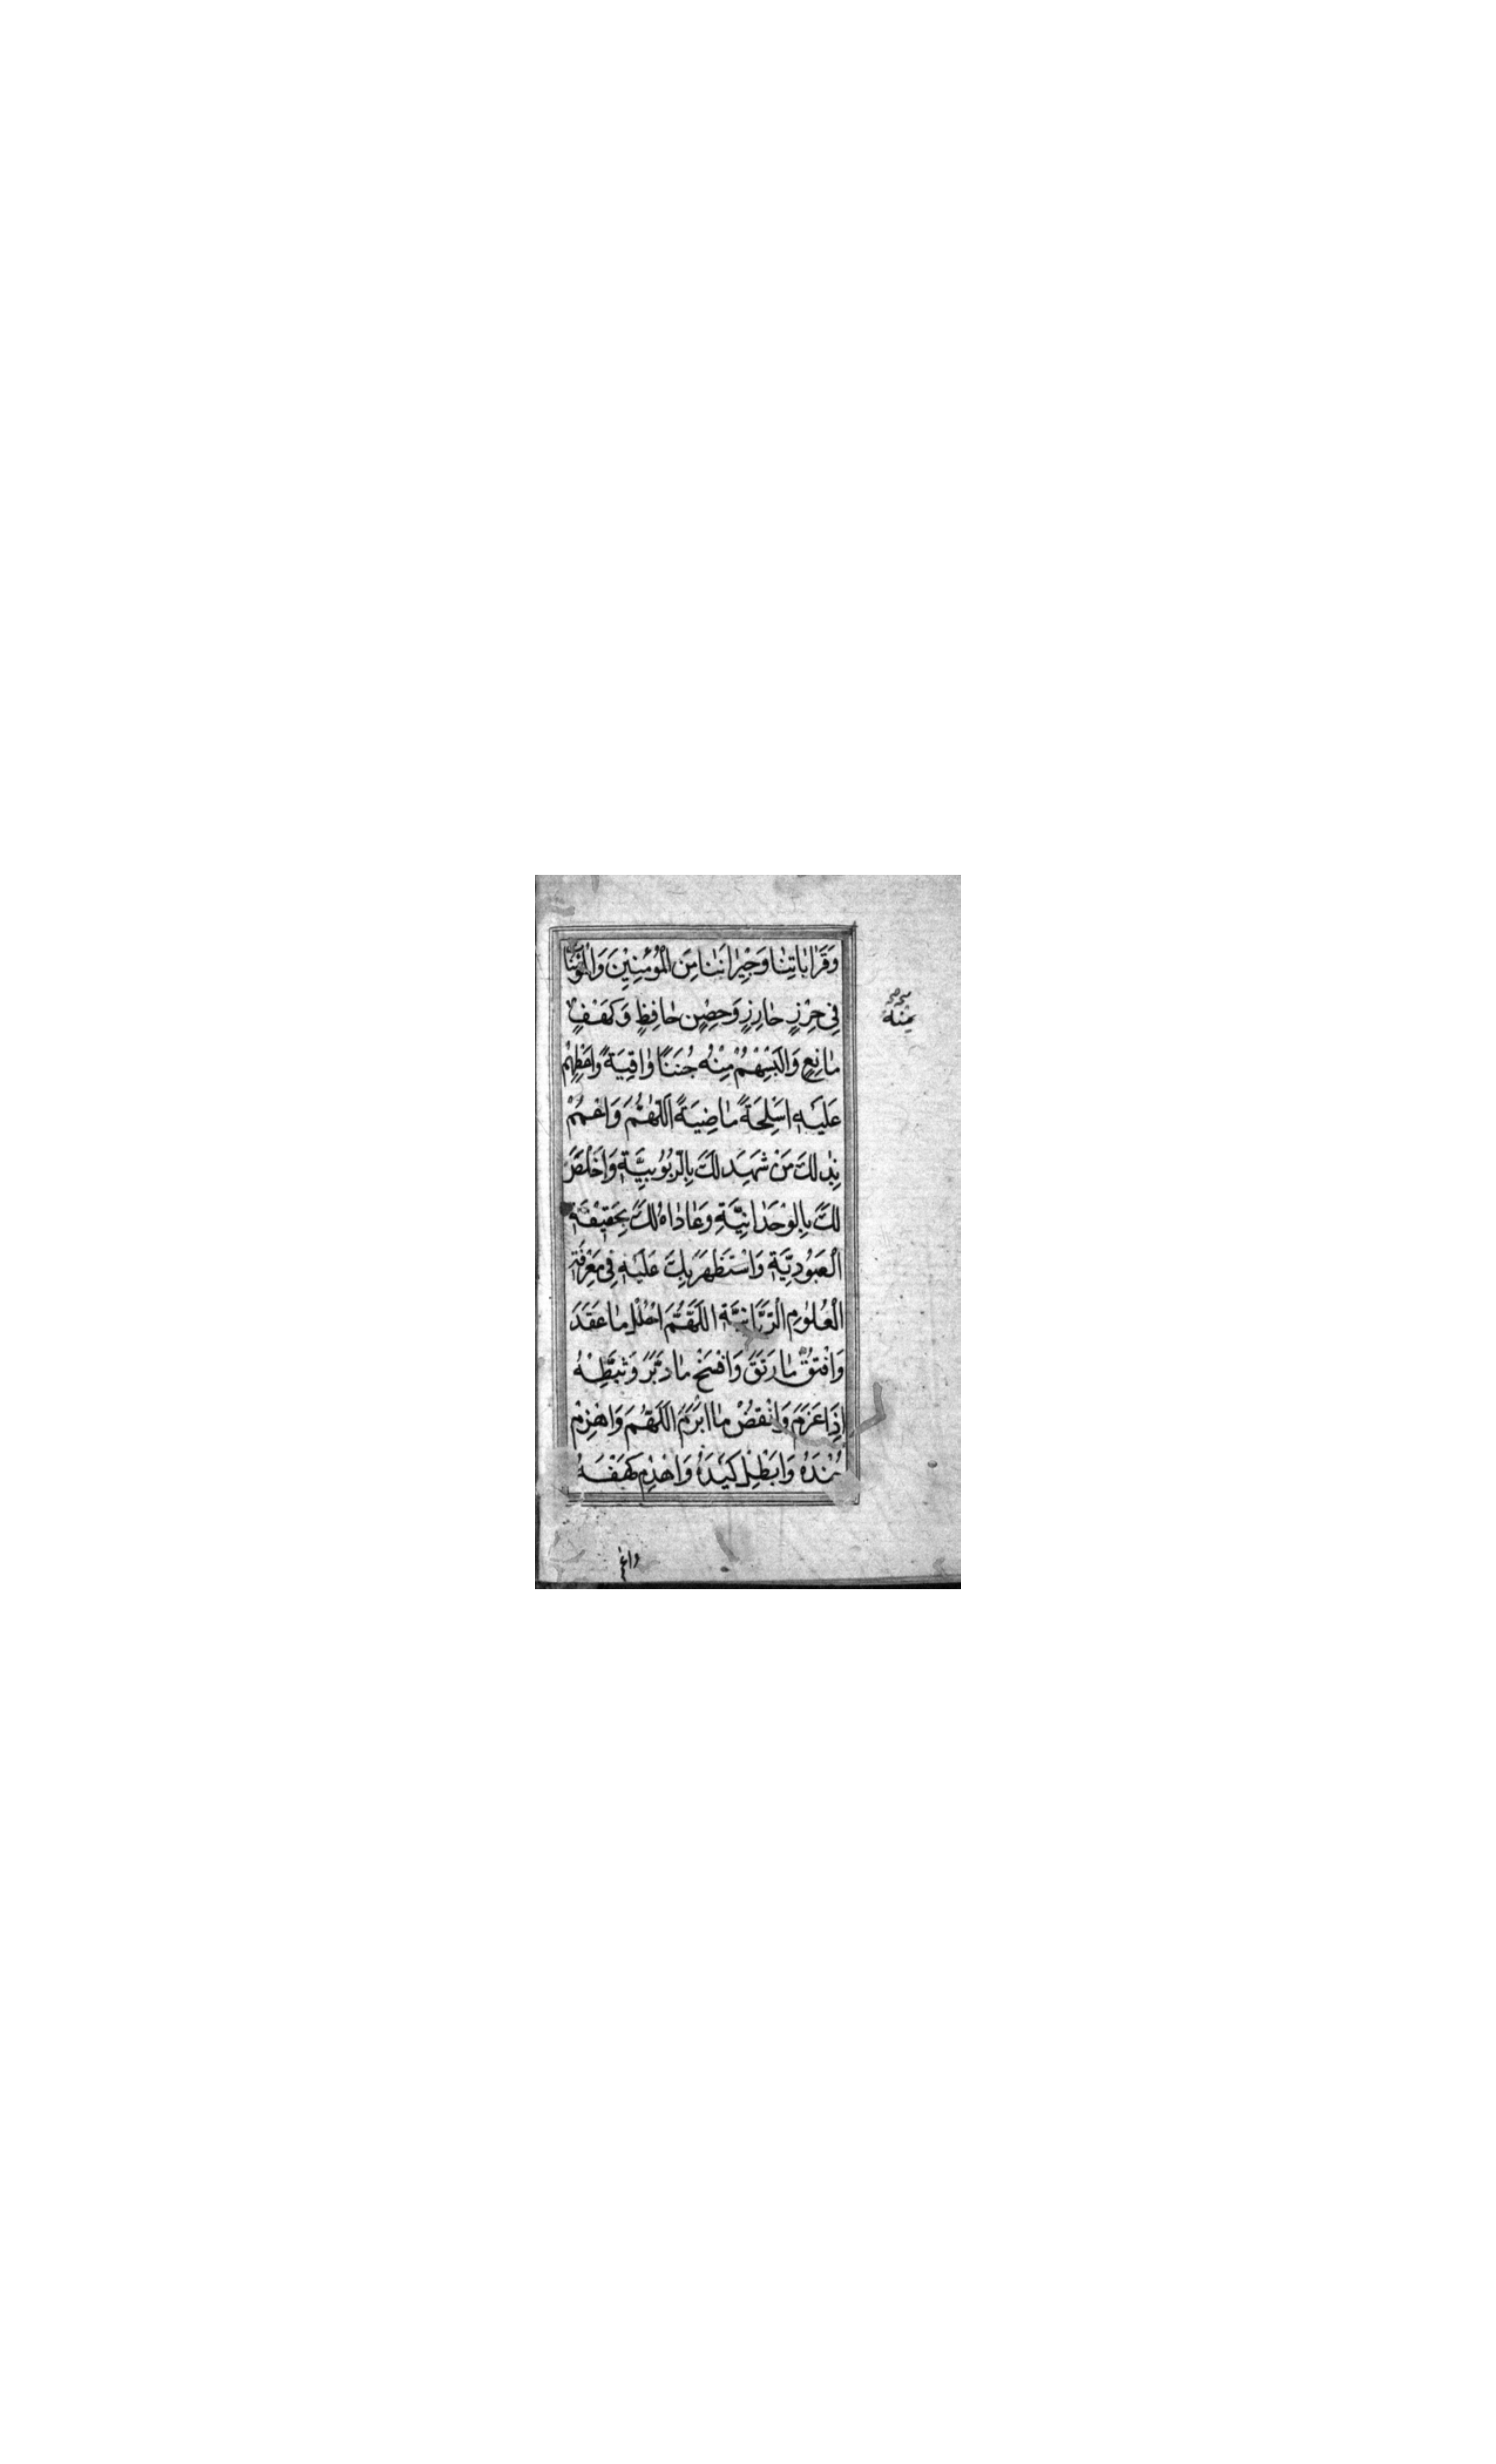 وَقَرَابَاتِنَا وَجِيرَانَنَا مِنَ الْمُؤْمِنِينَ وَالْمُؤْمِنَا
فِي حِرْزٍ حَارِزٍ وَحِصْنٍ حَافِظٍ وَكَهْفٍ
مِنْهُ
مَانِعٍ وَالْبِسْهُمْ مِنْهُ جُنَنًا وَاقِيَةً وَاعْطِهِمْ
عَلَيْهِ اَسْلِحَةً مَاضِيَةً اَللّٰهُمَّ وَاعْمُمْ
بِذٰلِكَ مَنْ شَهِدَ لَكَ بِالرُّبُوبِيَّةِ وَاَخْلَصَ
لَكَ بِالْوَحْدَانِيَّةِ وَعَادَاهُ لَكَ بِحَقِيقَةِ
الْعُبُودِيَّةِ وَاسْتَظْهَرَ بِكَ عَلَيْهِ فِي مَعْرِفَةِ
الْعُلُومِ الرَّبَّانِيَّةِ اَللّٰهُمَّ احْلُلْ مَا عَقَدَ
وَافْتُقْ مَا رَتَقَ وَافْسَخْ مَا دَبَّرَ وَثَبِّطْهُ
اِذَا عَزَمَ وَانْقُضْ مَا اَبْرَمَ اَللّٰهُمَّ وَاهْزِمْ
جُنْدَهُ وَاَبْطِلْ كَيْدَهُ وَاهْدِمْ كَهْفَهُ